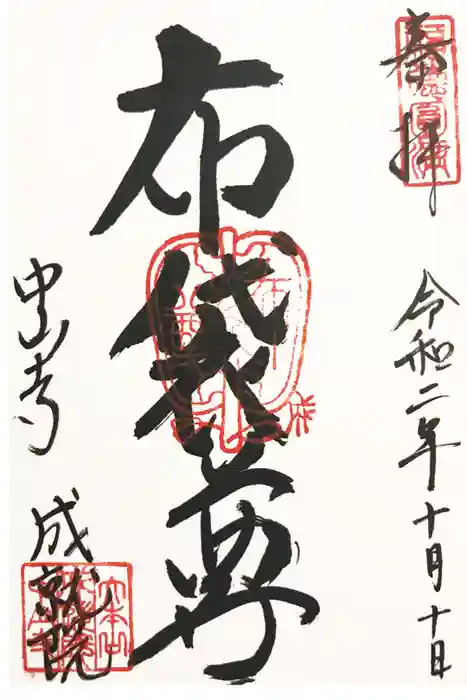 奉拝
令和二年十月十日
布袋尊
中山寺 成就院